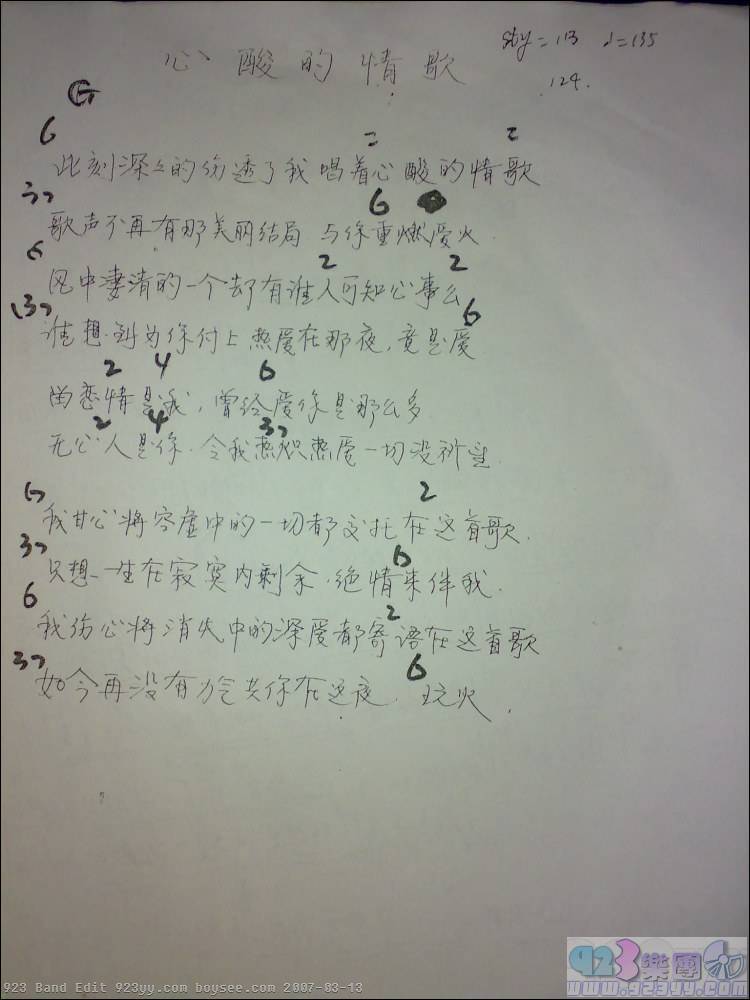 sty=113 ♩=135
心酸的情歌
124.
G
6 2 2
此刻深々的伤透了我唱着心酸的情歌
37 6
歌声不再有那美丽结局 与你重燃爱火.
6 2 2
风中凄清的一个却有谁人可知心事么
(37 6
谁想到为你付上热爱在那夜,竟是爱
2 4 6
的恋情是我,曾经爱你是那么多
2 4 37
无心人是你.令我热炽热爱一切没祈望.
6 2
我甘心将空虚中的一切都交托在这首歌.
37 6
只想一生在寂寞内剩余.绝情来伴我.
6 2
我伤心将消失中的深爱都寄语在这首歌
37 6
如今再没有力气共你在这夜.玩火.
923 Band Edit 923yy.com boysee.com 2007-03-13
923樂團
www.923yy.com